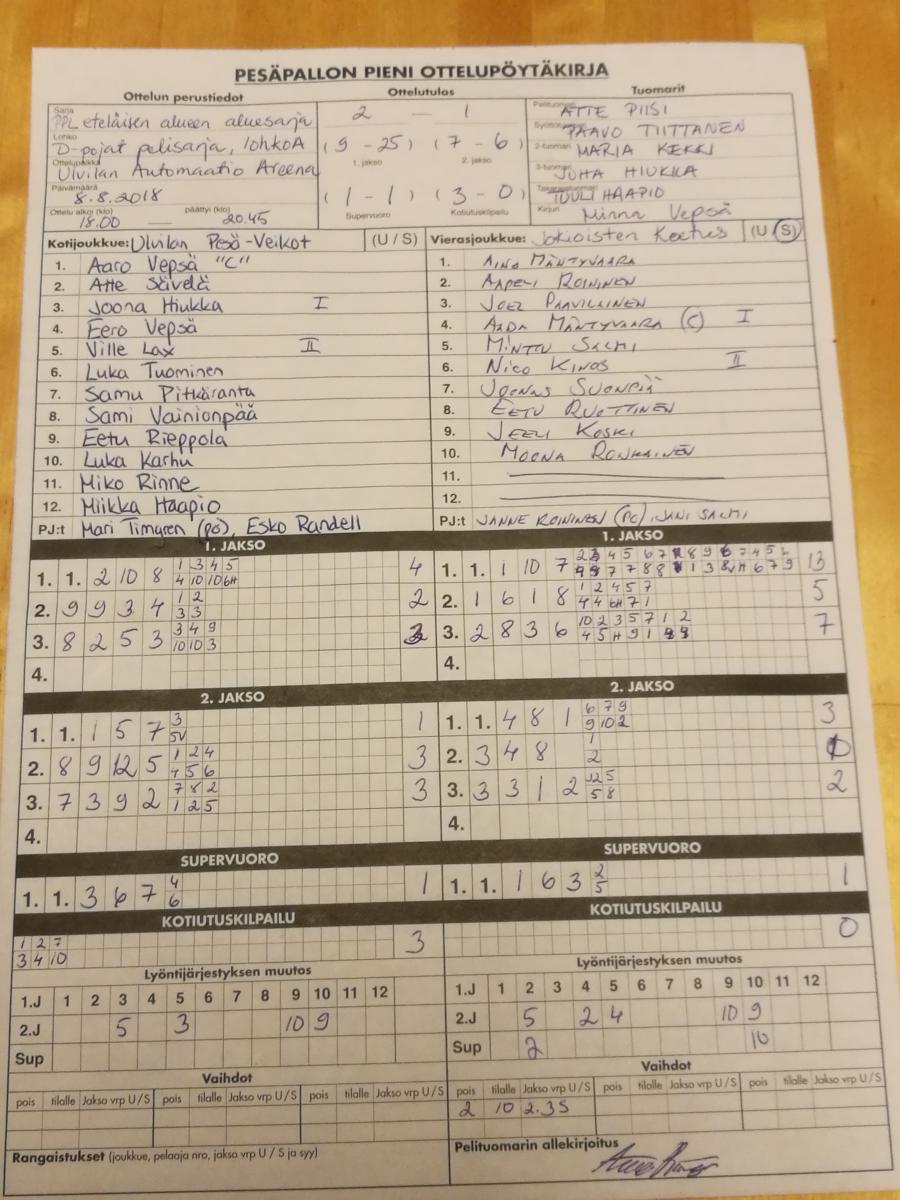 PESÄPALLON PIENI OTTELUPÖYTÄKIRJA
Ottelun perustiedot Ottelutulos Tuomarit
Sarja PPL eteläisen alueen aluesarja
Lohko D-pojat pelisarja, lohko A
Ottelupaikka Ulvilan Automaatio Areena
Päivämäärä 8.8.2018
Ottelu alkoi (klo) 18.00 — päättyi (klo) 20.45
2 — 1
(9 - 25) (7 - 6)
1. jakso 2. jakso
(1 - 1) (3 - 0)
Supervuoro Kotiutuskilpailu
Pelituomari ATTE PIISI
PAAVO TIITTANEN
2-tuomari MARJA KEKKI
3-tuomari JUHA HIUKKA
TUULI HAAPIO
Kirjuri Minna Vepsä
Kotijoukkue: Ulvilan Pesä-Veikot (U / S)
1. Aaro Vepsä "C"
2. Atte Sävelä
3. Joona Hiukka I
4. Eero Vepsä
5. Ville Lax II
6. Luka Tuominen
7. Samu Pitkäranta
8. Sami Vainionpää
9. Eetu Rieppola
10. Luka Karhu
11. Miko Rinne
12. Miikka Haapio
PJ:t Mari Timgren (pö), Esko Randell
Vierasjoukkue: Jokioisten Koetus (U / S)
1. AINO MÄNTYVAARA
2. AAPELI ROININEN
3. JOEL PAAVILAINEN
4. AADA MÄNTYVAARA (C) I
5. MINTTU SALMI
6. NICO KINOS II
7. JOONAS SUONPÄÄ
8. EETU RUOTTINEN
9. JEELI KOSKI
10. MOONA RONKAINEN
11.
12.
PJ:t JANNE ROININEN (PC), JANI SALMI
1. JAKSO
1. 1. 2 10 8 1 3 4 5 4
4 10 10 6H
2. 9 9 3 4 1 2 2
3 3
3. 8 2 5 3 3 4 9 3
10 10 3
4.
1. JAKSO
1. 1. 1 10 7 13
2. 1 6 1 8 1 2 4 5 7 5
4 4 6H 7 1
3. 2 8 3 6 10 2 3 5 7 1 2 7
4 5 H 9 1
4.
2. JAKSO
1. 1. 1 5 7 3 1
5V
2. 8 9 12 5 1 2 4 3
4 5 6
3. 7 3 9 2 7 8 2 3
1 2 5
4.
2. JAKSO
1. 1. 4 8 1 6 7 9 3
9 10 2
2. 3 4 8 1
2
3. 3 3 1 2 2
5 8
4.
SUPERVUORO
1. 1. 3 6 7 4 1
6
SUPERVUORO
1. 1. 1 6 3 2 1
5
KOTIUTUSKILPAILU
1 2 7 3
3 4 10
KOTIUTUSKILPAILU
0
Lyöntijärjestyksen muutos
1.J 1 2 3 4 5 6 7 8 9 10 11 12
2.J 5 3 10 9
Sup
Lyöntijärjestyksen muutos
1.J 1 2 3 4 5 6 7 8 9 10 11 12
2.J 5 2 4 10 9
Sup 2 10
Vaihdot
pois tilalle Jakso vrp U / S pois tilalle Jakso vrp U / S pois tilalle Jakso vrp U / S
Vaihdot
pois tilalle Jakso vrp U / S pois tilalle Jakso vrp U / S pois tilalle Jakso vrp U / S
2 10 2.3S
Rangaistukset (joukkue, pelaaja nro, jakso vrp U / S ja syy)
Pelituomarin allekirjoitus